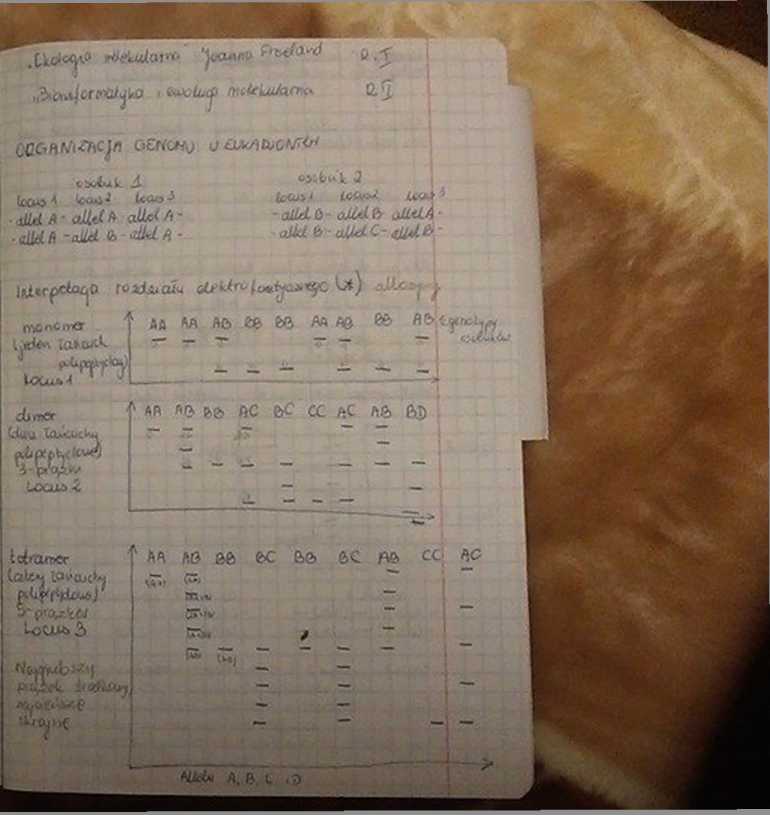 "Ekologia molekularna" Joanna Freeland R. I
"Bioinformatyka i ewolucja molekularna R II
ORGANIZACJA GENOMU U EUKARIONTÓW
osobnik 1 osobnik 2
locus 1 locus 2 locus 3 locus 1 locus 2 locus 3
- allel A - allel A allel A - - allel B - allel B allel A -
- allel A - allel B - allel A - - allel B - allel C - allel B -
Interpretacja rozdziału elektroforetycznego (*)
monomer AA AA AB BB BB AA AB BB AB genotypy
(jeden łańcuch osobników
polipeptydowy)
Locus 1
dimer AA AB BB AC BC CC AC AB BD
(dwa łańcuchy
polipeptydowe)
3-prążki
Locus 2
tetramer AA AB BB BC BB BC AB CC AC
(cztery łańcuchy
polipeptydowe)
5-prążków
Locus 3
Najgrubszy
prążek środkowy,
najcieńsze
skrajne
Allele A, B, C i D